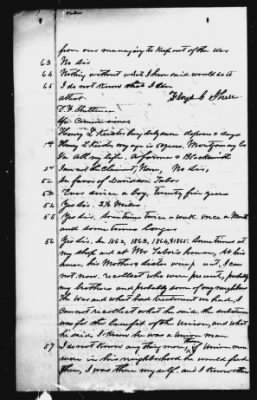 from our managing to keep out of the War
63 No sir
64 Nothing without what I have said would do it
65 I do not know that I did
attest
Floyd C Shull
Henry L Keisler being duly sworn deposes & says
1st Henry L Keisler my age is 39 years, Montgomery Co
Va All my life. A farmer & Blacksmith
2d I am not the Claimant, None, No sir,
52 In favor of Lewis Tabor
53 Ever since a boy, Twenty five years
54 Yes Sir. 2½ Miles
55 Yes Sir. Sometimes twice a week once a Month
and sometimes longer
56 Yes Sir. In 1862, 1863, 1864, & 1865. Sometimes at
my shop and at Mr Tabor's house, at his
house, his Mothers
not now recollect who were present, probably
my brothers and probably some of my neighbors
The War and what bad treatment we had, I
cannot recollect what he said, the substance
was for the benefit of the Union, and what
he said, I know he was a Union man
57 I do not know any thing more, the Union men
were in this neighborhood he would feed
them, I was there myself and I know when